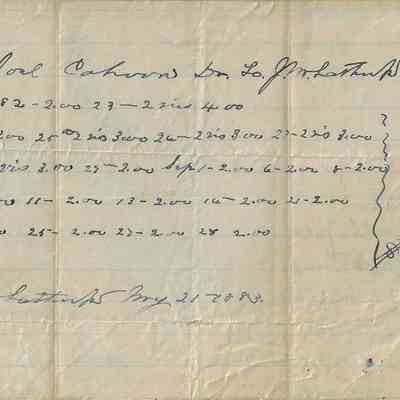 Joel Cahoon Dr. To. J. W. Lathrop
82 - 2.00 23 - 2 vis 4.00
2.00 25 2 vis 3.00 26 - 2 vis 3.00 27 - 2 vis 3.00
vis 3.00 29 - 2.00 Sept 1 - 2.00 6 - 2.00 8 - 2.00
11 - 2.00 13 - 2.00 16 - 2.00 21 - 2.00
25 - 2.00 27 - 2.00 28 2.00
$
Lathrop May 21 - 1883.